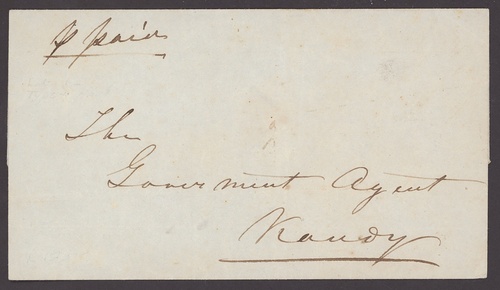 p paid
The
Goverment Agent
Kandy